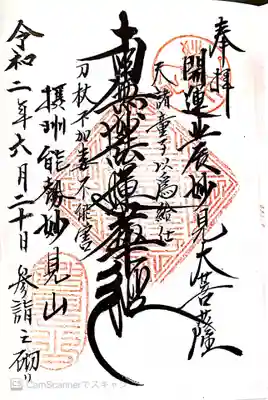 奉拝
開運北辰妙見大菩薩
天諸童子以為給仕
南無妙法蓮華経
刀杖不加毒不能害
摂州能勢妙見山
令和二年六月二十日 参詣之砌
CamScannerでスキャン